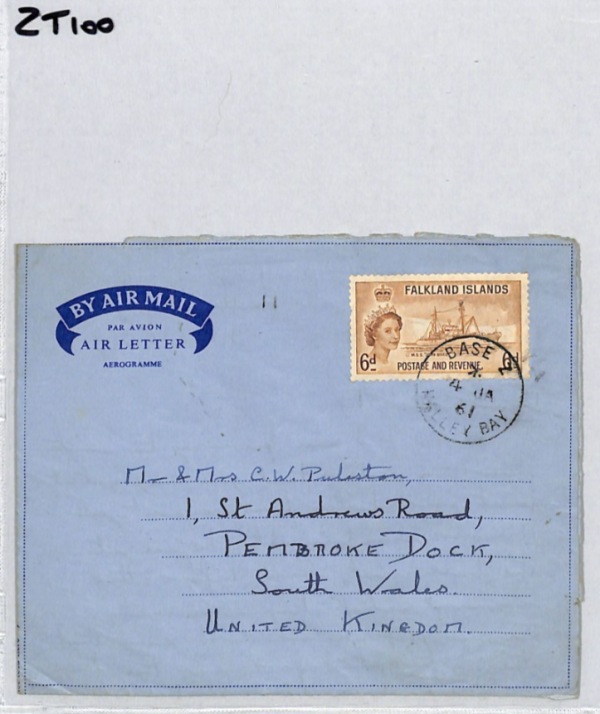 ZT100
BY AIR MAIL
PAR AVION
AIR LETTER
AEROGRAMME
11
FALKLAND ISLANDS
6d 6d
POSTAGE AND REVENUE
BASE Z
4 JA
61
HALLEY BAY
Mr & Mrs C.W. Puleston,
1, St Andrews Road,
PEMBROKE DOCK,
South Wales.
UNITED KINGDOM.